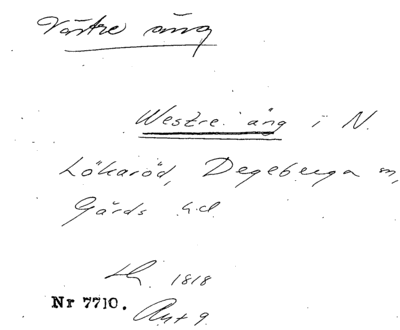 Västre äng
Westre äng i N.
Lökaröd, Degeberga m,
Gärds hd
Lh. 1818
Nr 7710.
Akt 9